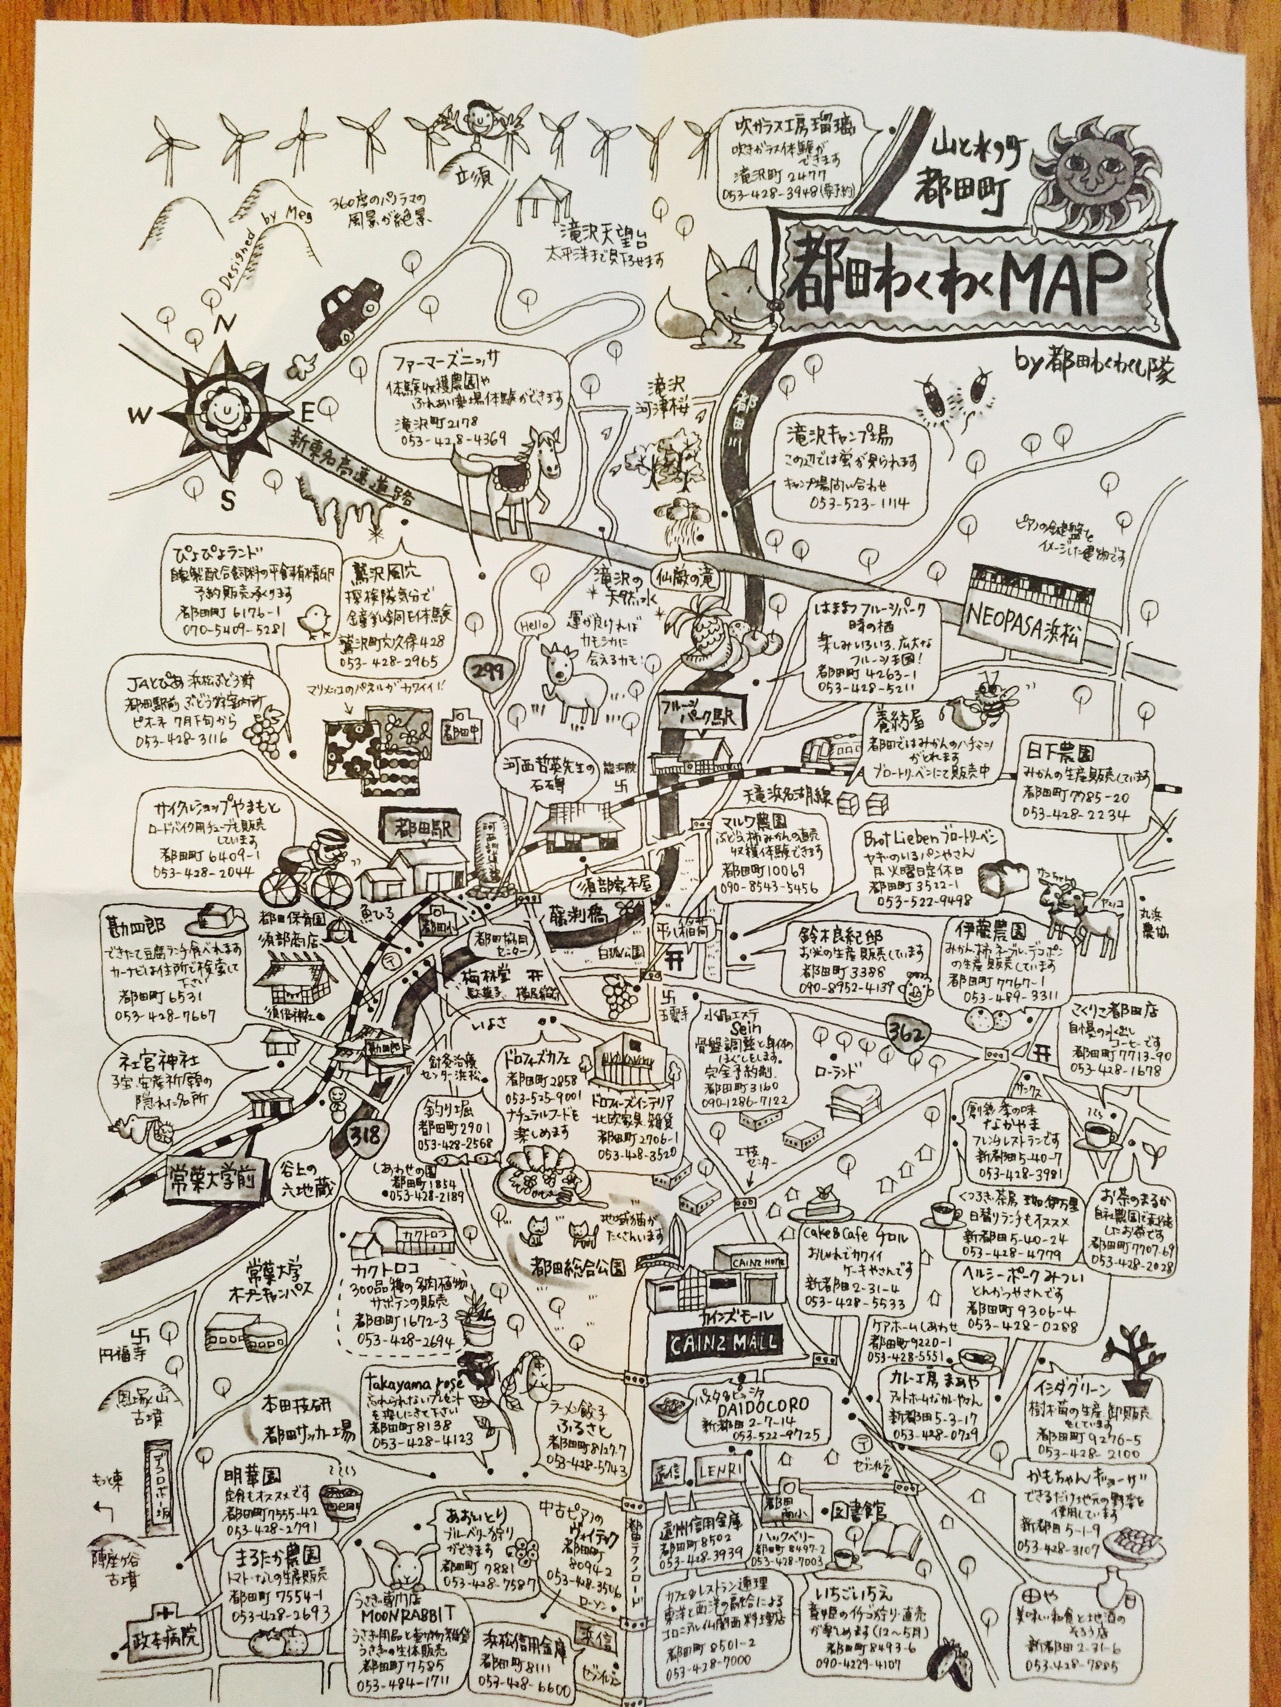 山と水の町
都田町
都田わくわくMAP
by 都田わくわくし隊
吹ガラス工房瑠璃
吹きガラス体験が
できます
滝沢町2477
053-428-3948(要予約)
立須
360度のパノラマの
風景が絶景
Designed by Meg
滝沢天望台
太平洋まで見下せます
N
W
E
S
新東名高速道路
ファーマーズニッサ
体験収穫農園や
ふれあい牧場体験ができます
滝沢町2178
053-428-4369
滝沢
河津桜
都田川
滝沢キャンプ場
この辺では蛍が見られます
キャンプ場問い合わせ
053-523-1114
ピアノの鍵盤を
イメージした建物です
NEOPASA浜松
ぴよぴよランド
自家製配合飼料の平飼有精卵
予約販売承ります
都田町6176-1
070-5409-5281
鷲沢風穴
探検隊気分で
鍾乳洞を体験
鷲沢町穴久保428
053-428-2965
滝沢の
天然水
仙巌の滝
Hello
運が良ければ
カモシカに
会えるカモ!
299
はままつフルーツパーク
時の栖
楽しみいろいろ、広大な
フルーツ王国!
都田町4263-1
053-428-5211
JAとぴあ浜松ぶどう狩
都田駅前ぶどう狩案内所
ピオーネ 7月下旬から
053-428-3116
マリメッコのパネルがカワイイ!
都田中
フルーツ
パーク駅
養紡屋
都田ではみかんのハチミツ
がとれます
ブロートリーベンにて販売中
日下農園
みかんの生産販売しています
都田町7785-20
053-428-2234
河西哲英先生の
石碑
天竜浜名湖線
サイクルショップやまもと
ロードバイク用チューブも販売
しています
都田町6409-1
053-428-2044
都田駅
須部家本屋
マルワ農園
ぶどう柿みかんの直売
収穫体験できます
都田町10069
090-8543-5456
Brot Lieben ブロートリーベン
ヤギのいるパンやさん
月火曜日定休日
都田町3522-1
053-522-9498
勘四郎
できたて豆腐ランチ食べれます
カーナビは住所で検索して
下さい
都田町6531
053-428-7667
都田保育園
須部商店
魚ひろ
都田小
都田協同
センター
藤渕橋
梅林堂
駄菓子
須倍神社
鈴木良紀郎
お米の生産販売しています
都田町3388
090-8952-4139
伊藤農園
みかん柿ネーブルデコポン
の生産販売しています
都田町7767-1
053-489-3311
丸浜
農協
社宮神社
子宝・安産祈願の
隠れた名所
勘四郎
いよさ
鍼灸治療
センター浜松
ドロフィーズカフェ
都田町2858
053-525-9001
ナチュラルフードを
楽しめます
ドロフィーズインテリア
北欧家具、雑貨
都田町2706-1
053-428-3520
水晶エステ
Sein
骨盤調整と身体の
ほぐしをします。
完全予約制
都田町3160
090-1286-7122
362
ローランド
こくりこ都田店
自慢の水出し
コーヒーです
都田町7713-90
053-428-1678
釣り堀
都田町2901
053-428-2568
318
常葉大学前
谷上の
六地蔵
しあわせの園
都田町1854
053-428-2189
サンクス
創作季の味
なかやま
フレンチレストランです
新都田5-40-7
053-428-3981
工技
センター
地域猫が
たくさんいます
都田総合公園
くつろぎ茶房 珈伊万里
日替りランチもオススメ
新都田5-40-24
053-428-4779
お茶のまるか
自社農園で栽培
したお茶です
都田町7707-69
053-428-2028
常葉大学
オープンキャンパス
カクトロコ
カクトロコ
300品種の多肉植物
サボテンの販売
都田町1672-3
053-428-2694
CAINZ HOME
カインズモール
CAINZ MALL
Cake&Cafe ケロル
おしゃれでカワイイ
ケーキやさんです
新都田2-31-4
053-428-5533
ヘルシーポークみつい
とんかつやさんです
都田町9306-4
053-428-0288
ケアホームしあわせ
都田町9220-1
053-428-5551
円福寺
見塚山
古墳
本田技研
都田サッカー場
takayama rose
忘れられないプレゼント
を探しにきて下さい
都田町8138
053-428-4123
ラーメン餃子
ふるさと
都田町8127-7
053-428-5743
パスタ&ピッツァ
DAIDOCORO
新都田2-7-14
053-522-9725
カレー工房まぁや
アットホームなカレーやさん
新都田5-3-17
053-428-0729
イシダグリーン
樹木苗の生産、卸販売
をしています
都田町9276-5
053-428-2100
もっと東
アクロポリス坂
陣座ヶ谷
古墳
明華園
定食もオススメです
都田町7555-42
053-428-2791
まるたか農園
トマト・なしの生産販売
都田町7554-1
053-428-2693
政本病院
あおいとり
ブルーベリー狩り
ができます
都田町7881
053-428-7587
中古ピアノの
ヴォイテック
都田町
8094-2
053-428-3506
ローソン
都田テクノロード
遠信
LENRI
都田
南小
図書館
セブンイレブン
遠州信用金庫
都田町8502
053-428-3939
ハックベリー
都田町8497-2
053-428-7003
かもちゃんギョーザ
できるだけ地元の野菜を
使用しています
新都田5-1-9
053-428-3107
うさぎ専門店
MOONRABBIT
うさぎ用品と動物雑貨
うさぎの生体販売
都田町7585
053-484-1711
浜松信用金庫
都田町8111
053-428-6600
浜信
セブンイレブン
カフェ&レストラン連理
東洋と西洋の融合による
コロニアル仏蘭西料理店
都田町8501-2
053-428-7000
いちごいちえ
章姫のイチゴ狩り・直売
が楽しめます(12〜5月)
都田町8493-6
090-4229-4107
田や
美味い和食と地酒の
そろう店
新都田2-31-6
053-428-7885